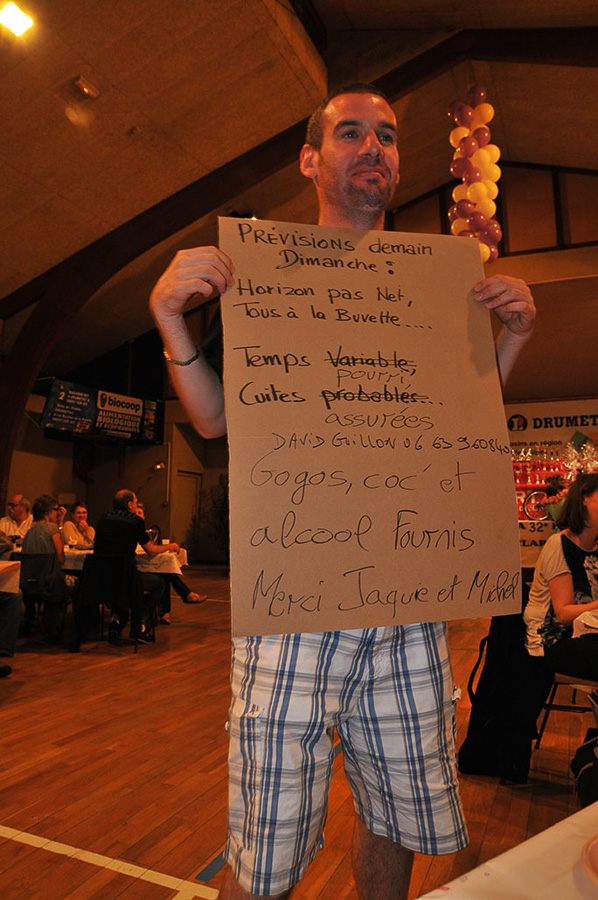 PRÉVISIONS demain
Dimanche :
Horizon pas Net,
Tous à la Buvette....
Temps Variable,
pourri,
Cuites probables...
assurées
DAVID GUILLON 06 63 9 60840
Gogos, coc' et
alcool Fournis
Merci Jaquie et Michel
biocoop
ALIMENTATION
BIOLOGIQUE
DRUMET
en région
32